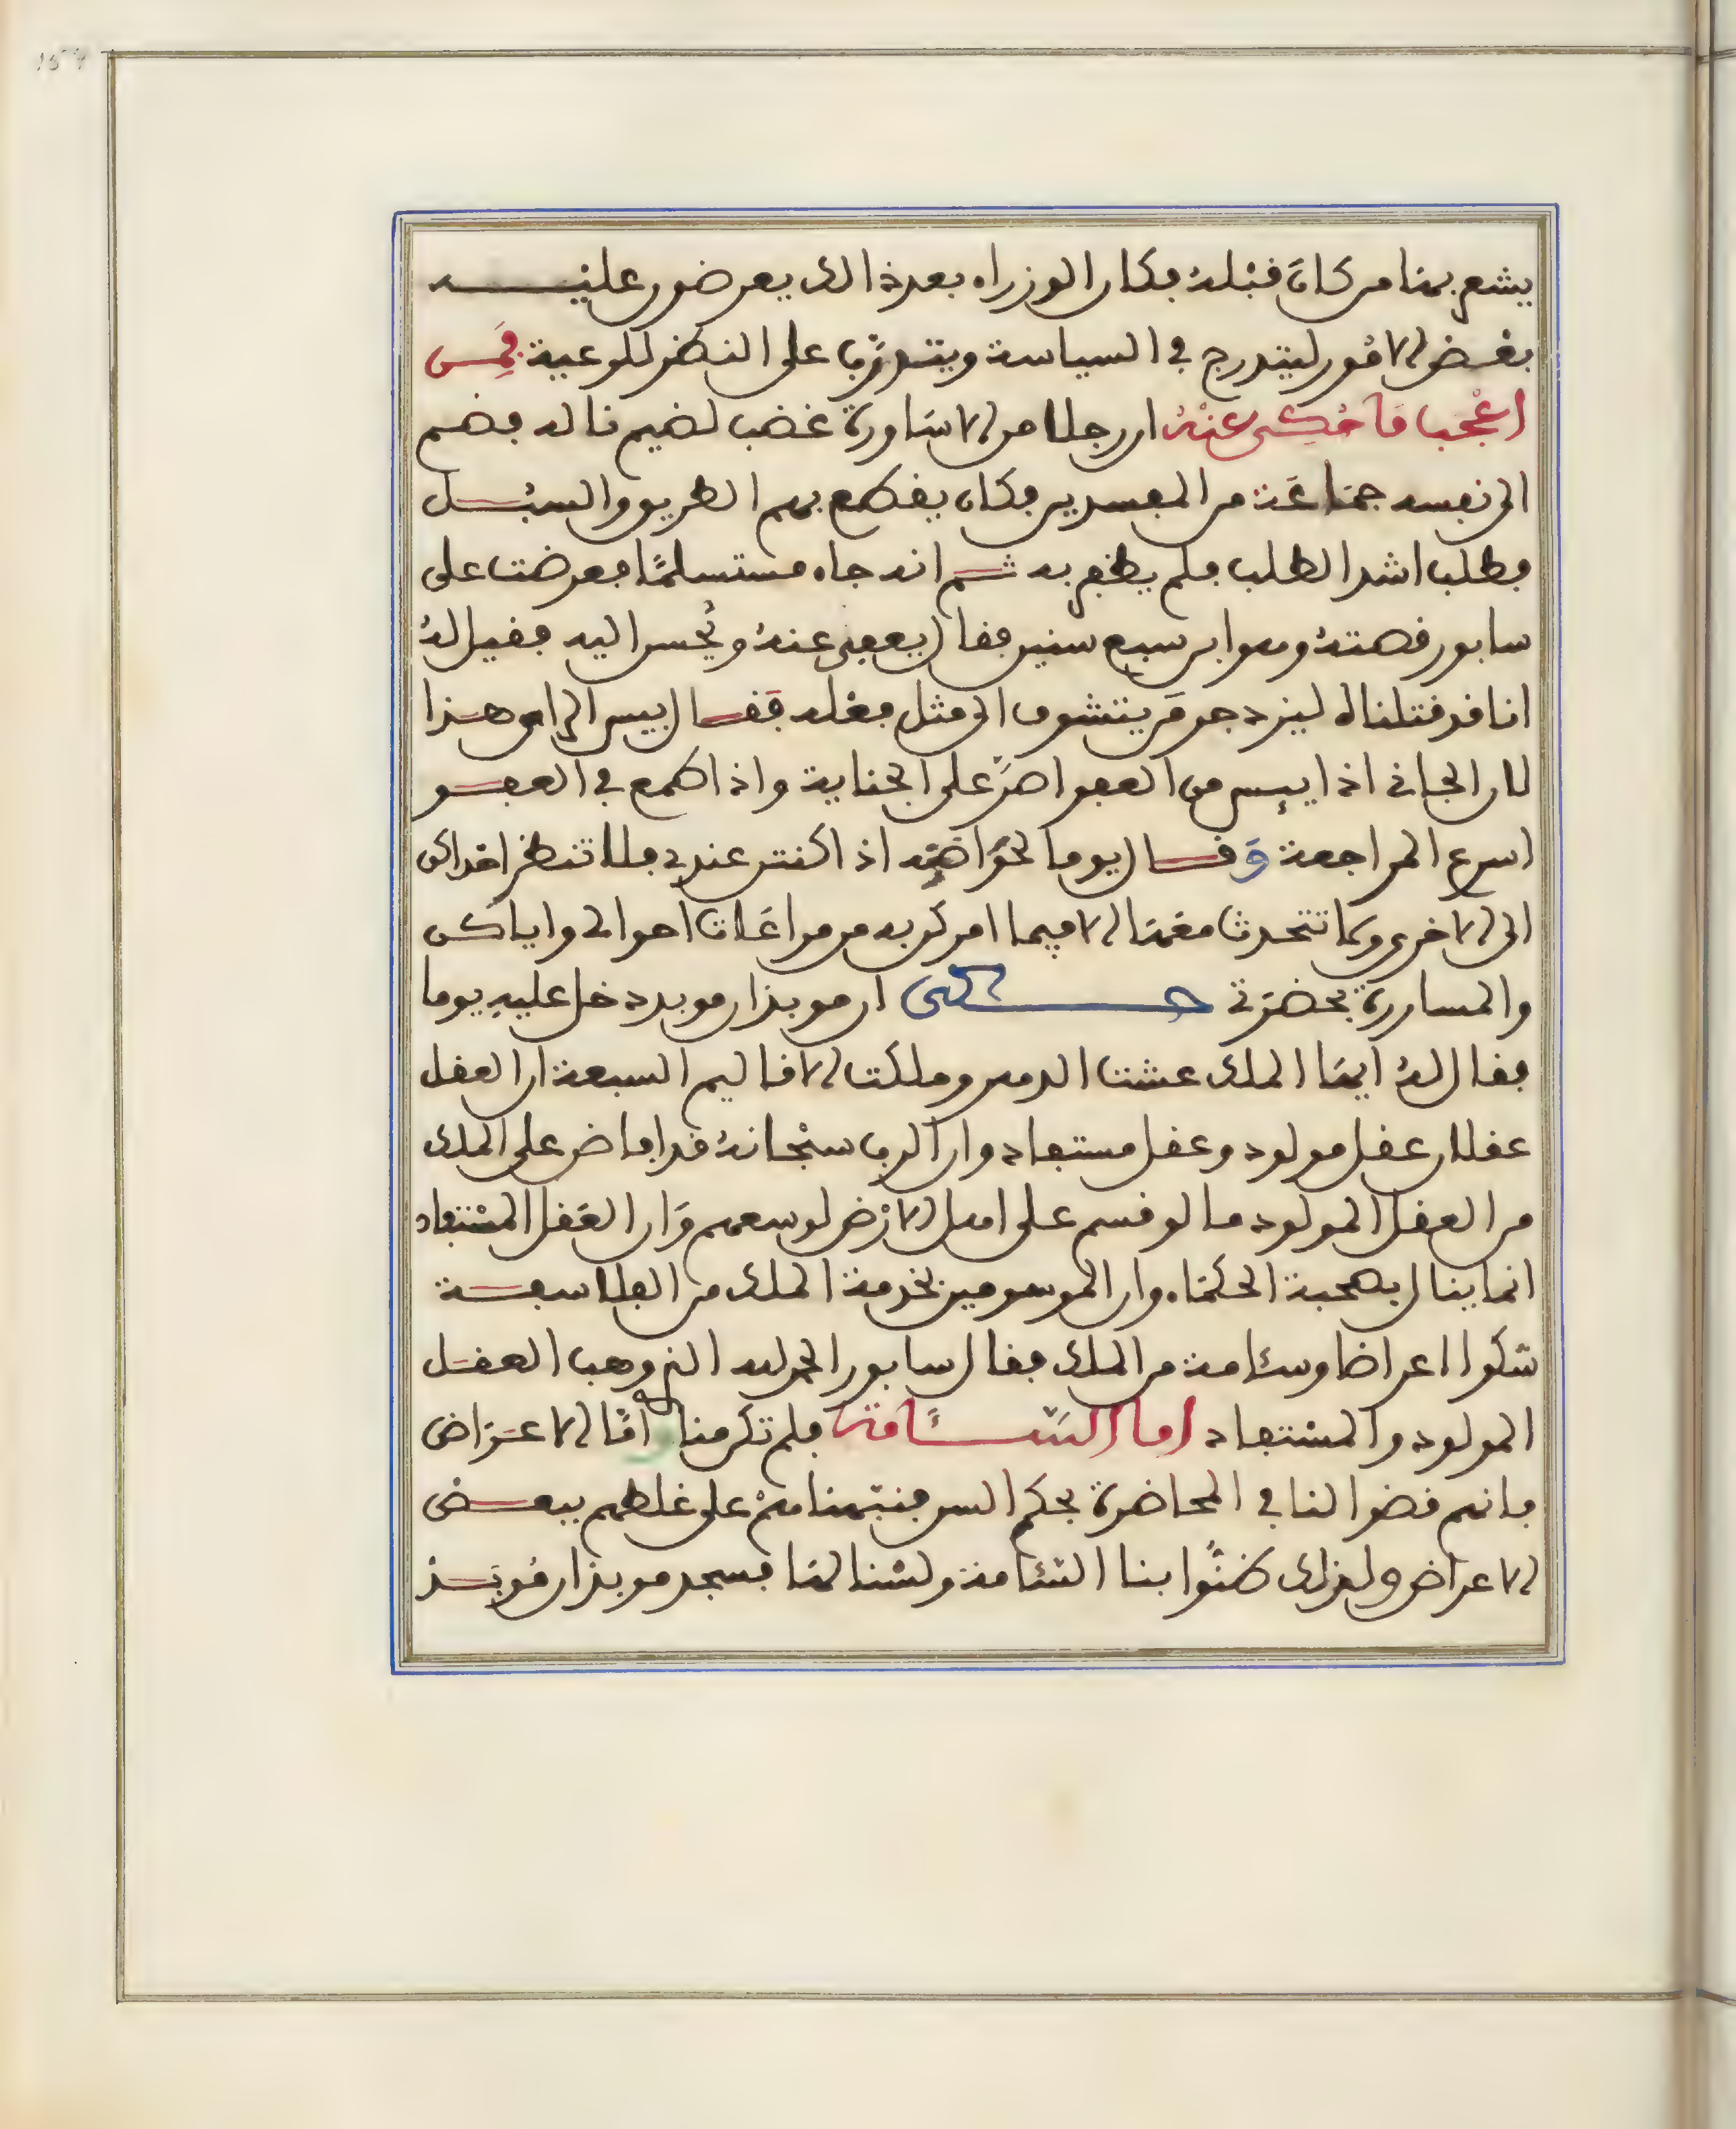 يشعر بها من كان قبله فكان الوزراء بعد ذالك يعرضون عليه
بعض الامور ليتدرج في السياسة ويتدرّب على النظر للرعية فمن
اعْجَب مَا حُكي عنْهُ ان رجلا من الاساورة غضب لضيم ناله فضم
الى نفسه جماعَة من المفسدين فكان يقطع بهم الطريق والسبُل
فطلب اشد الطلب فلم يظفر به ثم انه جاء مستسلمًا فعرضت على
سابور قصته وهو ابن سبع سنين فقال يعفى عنهُ ويُحسن اليه فقيل لهُ
انا قد قتلناه ليزدجر مَن يتشوف الى مثل فعله فَقال بيس الراي هذا
لان الجاني اذا يىٕس من العفو اصَرّ على الجناية واذا طمع في العفو
اسرع المراجعة وَقال يوما لخَوّاصّه اذا كنتن عندي فلا تنظر احداكن
الى الاخرى ولا تتحدث معَها الا فيما امركن به من مراعَات احوالى واياكن
والمساررة بحضرَتي حكى ان موبذان موبد دخل عليه يوما
فقال لهُ ايهَا الملك عشت الدهر وملكت الاقاليم السبعة ان العقل
عقلان عقل مولود وعقل مستفاد وان الرب سبْحانهُ قد افاض على الملك
من العقل المولود ما لو قسم على اهل الارْض لوسعهم وَان العَقل المسْتفاد
انما ينال بصحبة الحكمَاء وان الموسومين بخدمة الملك من الفلاسفة
شكوا اعراضا وسئامة من الملك فقال سابور الحمد لله الذي وهب العقل
المولود والمسْتفاد اما السّئَامة فلم تكن منا وامَّا الاعْرَاض
فانهم قضوا لنا في المحاضرة بحكم السن فنبّهنا منهمْ على غلطهم ببعض
الاعراض ولذلك ظنُّوا بنا السّئامة ولسْنا لهَا فسجد موبذان مُوبَذ